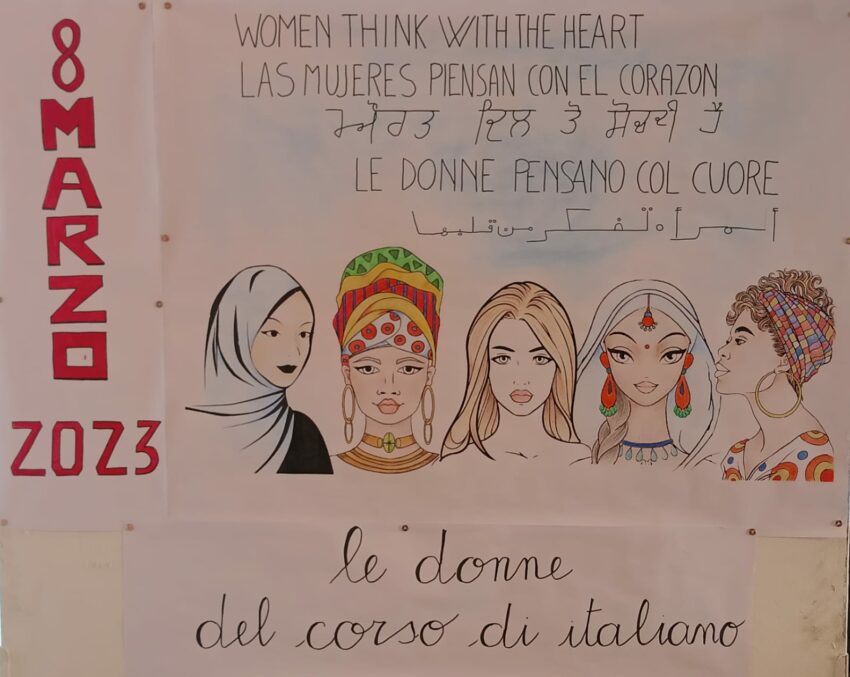 8 MARZO
2023
WOMEN THINK WITH THE HEART
LAS MUJERES PIENSAN CON EL CORAZON
ਔਰਤ ਦਿਲ ਤੋ ਸੋਚਦੀ ਹੈ
LE DONNE PENSANO COL CUORE
أمرأة تفكر من قلبها
le donne
del corso di italiano